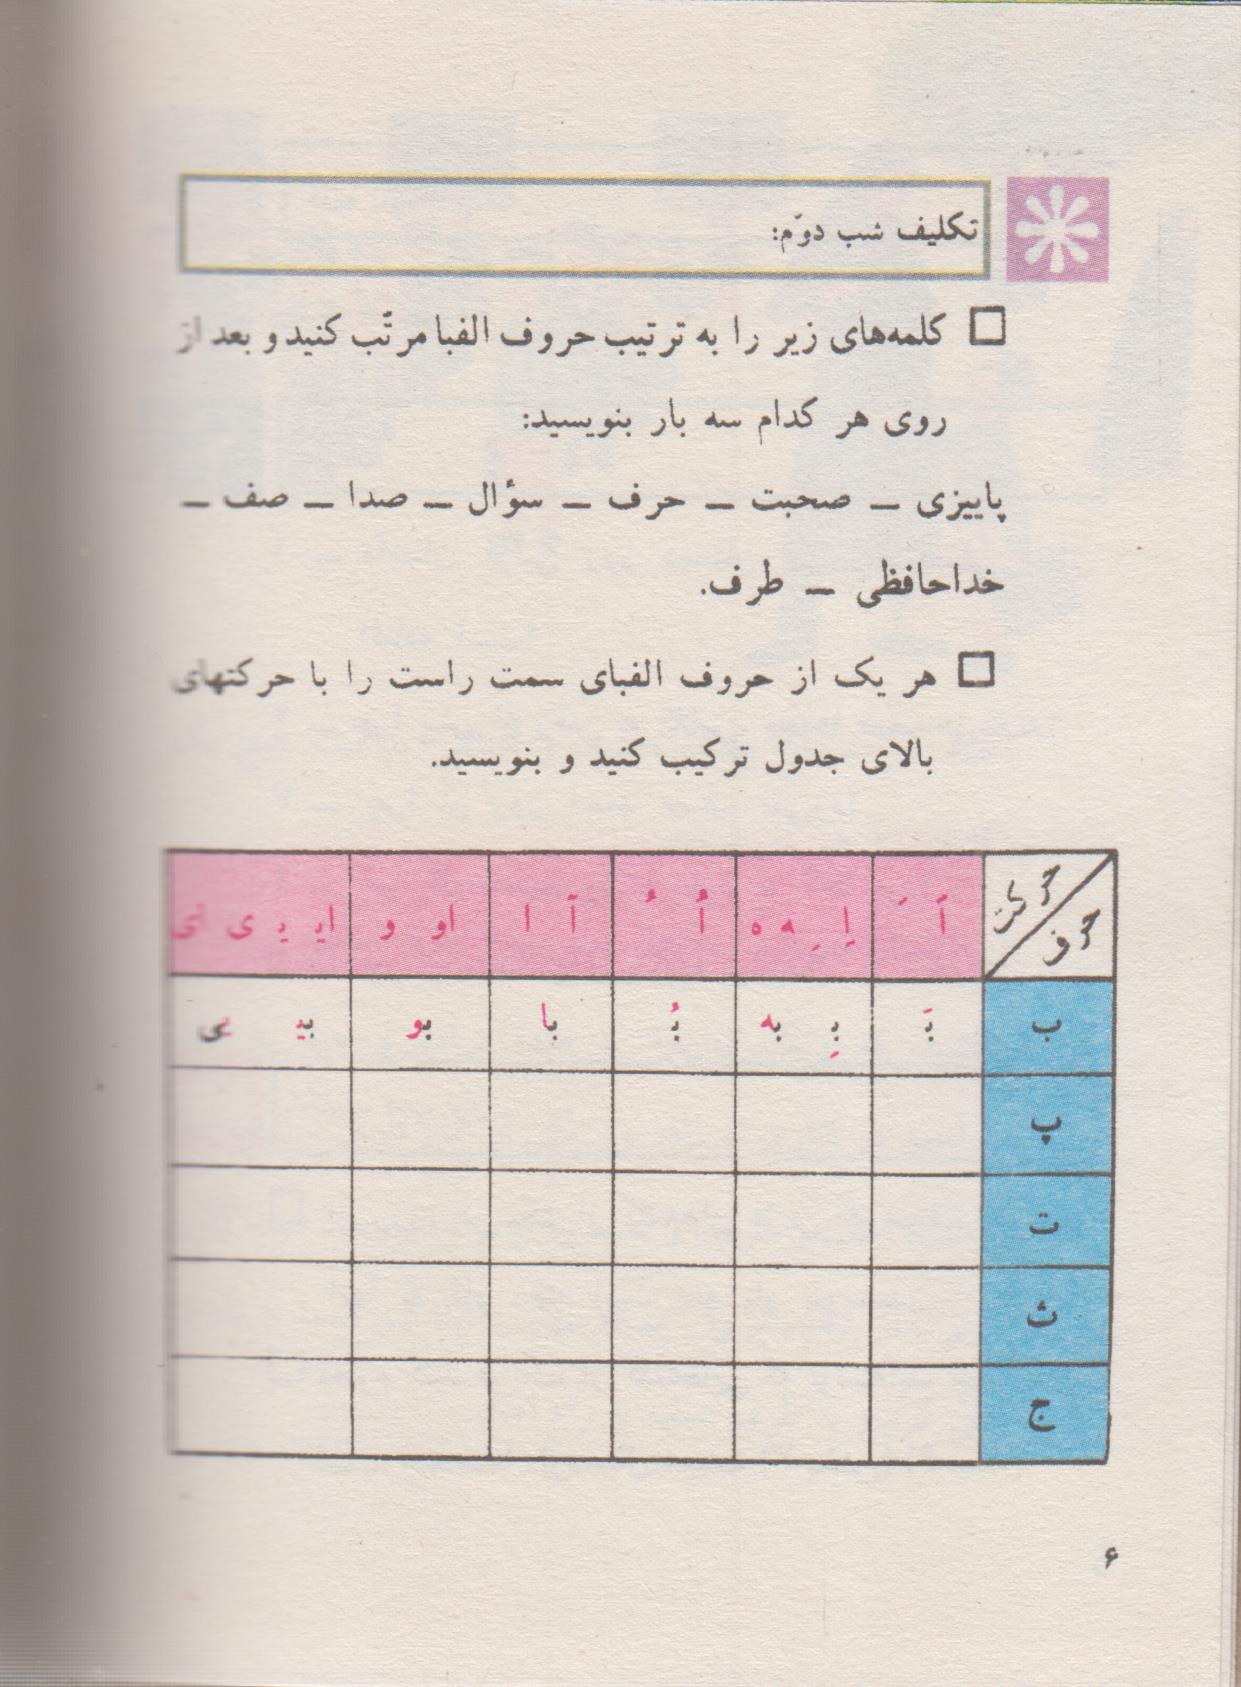 تکلیف شب دوّم:
کلمه‌های زیر را به ترتیب حروف الفبا مرتّب کنید و بعد از
روی هر کدام سه بار بنویسید:
پاییزی ـ صحبت ـ حرف ـ سؤال ـ صدا ـ صف ـ
خداحافظی ـ طرف.
هر یک از حروف الفبای سمت راست را با حرکتهای
بالای جدول ترکیب کنید و بنویسید.
حرکت حرف اَ َ اِ ِ ـه ه اُ ُ آ ا او و ایـ یـ ی ای
ب بَ بِ به بُ با بو بیـ بی
پ
ت
ث
ج
۶